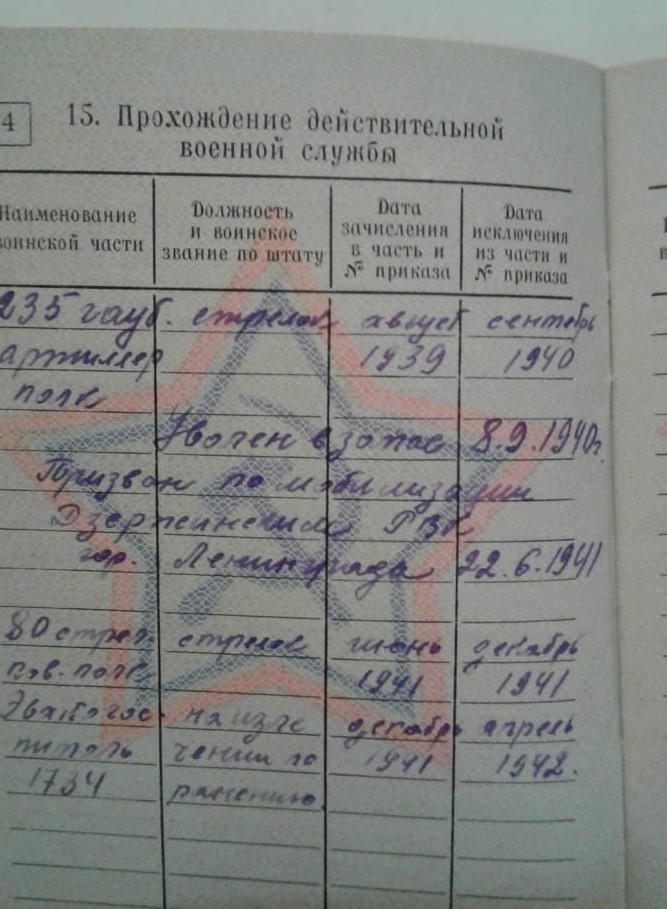 4
15. Прохождение действительной
военной службы
Наименование
воинской части
Должность
и воинское
звание по штату
Дата
зачисления
в часть и
№ приказа
Дата
исключения
из части и
№ приказа
235 гауб. стрелок август сентябрь
артиллер 1939 1940
полк
Уволен в запас 8.9.1940г.
Призван по мобилизации
Дзержинским РВК
гор. Ленинграда 22.6.1941
80 стрел- стрелок июнь декабрь
ков. полк 1941 1941
Эвакогос- на изле декабрь апрель
питаль чении по 1941 1942.
1734 ранению.